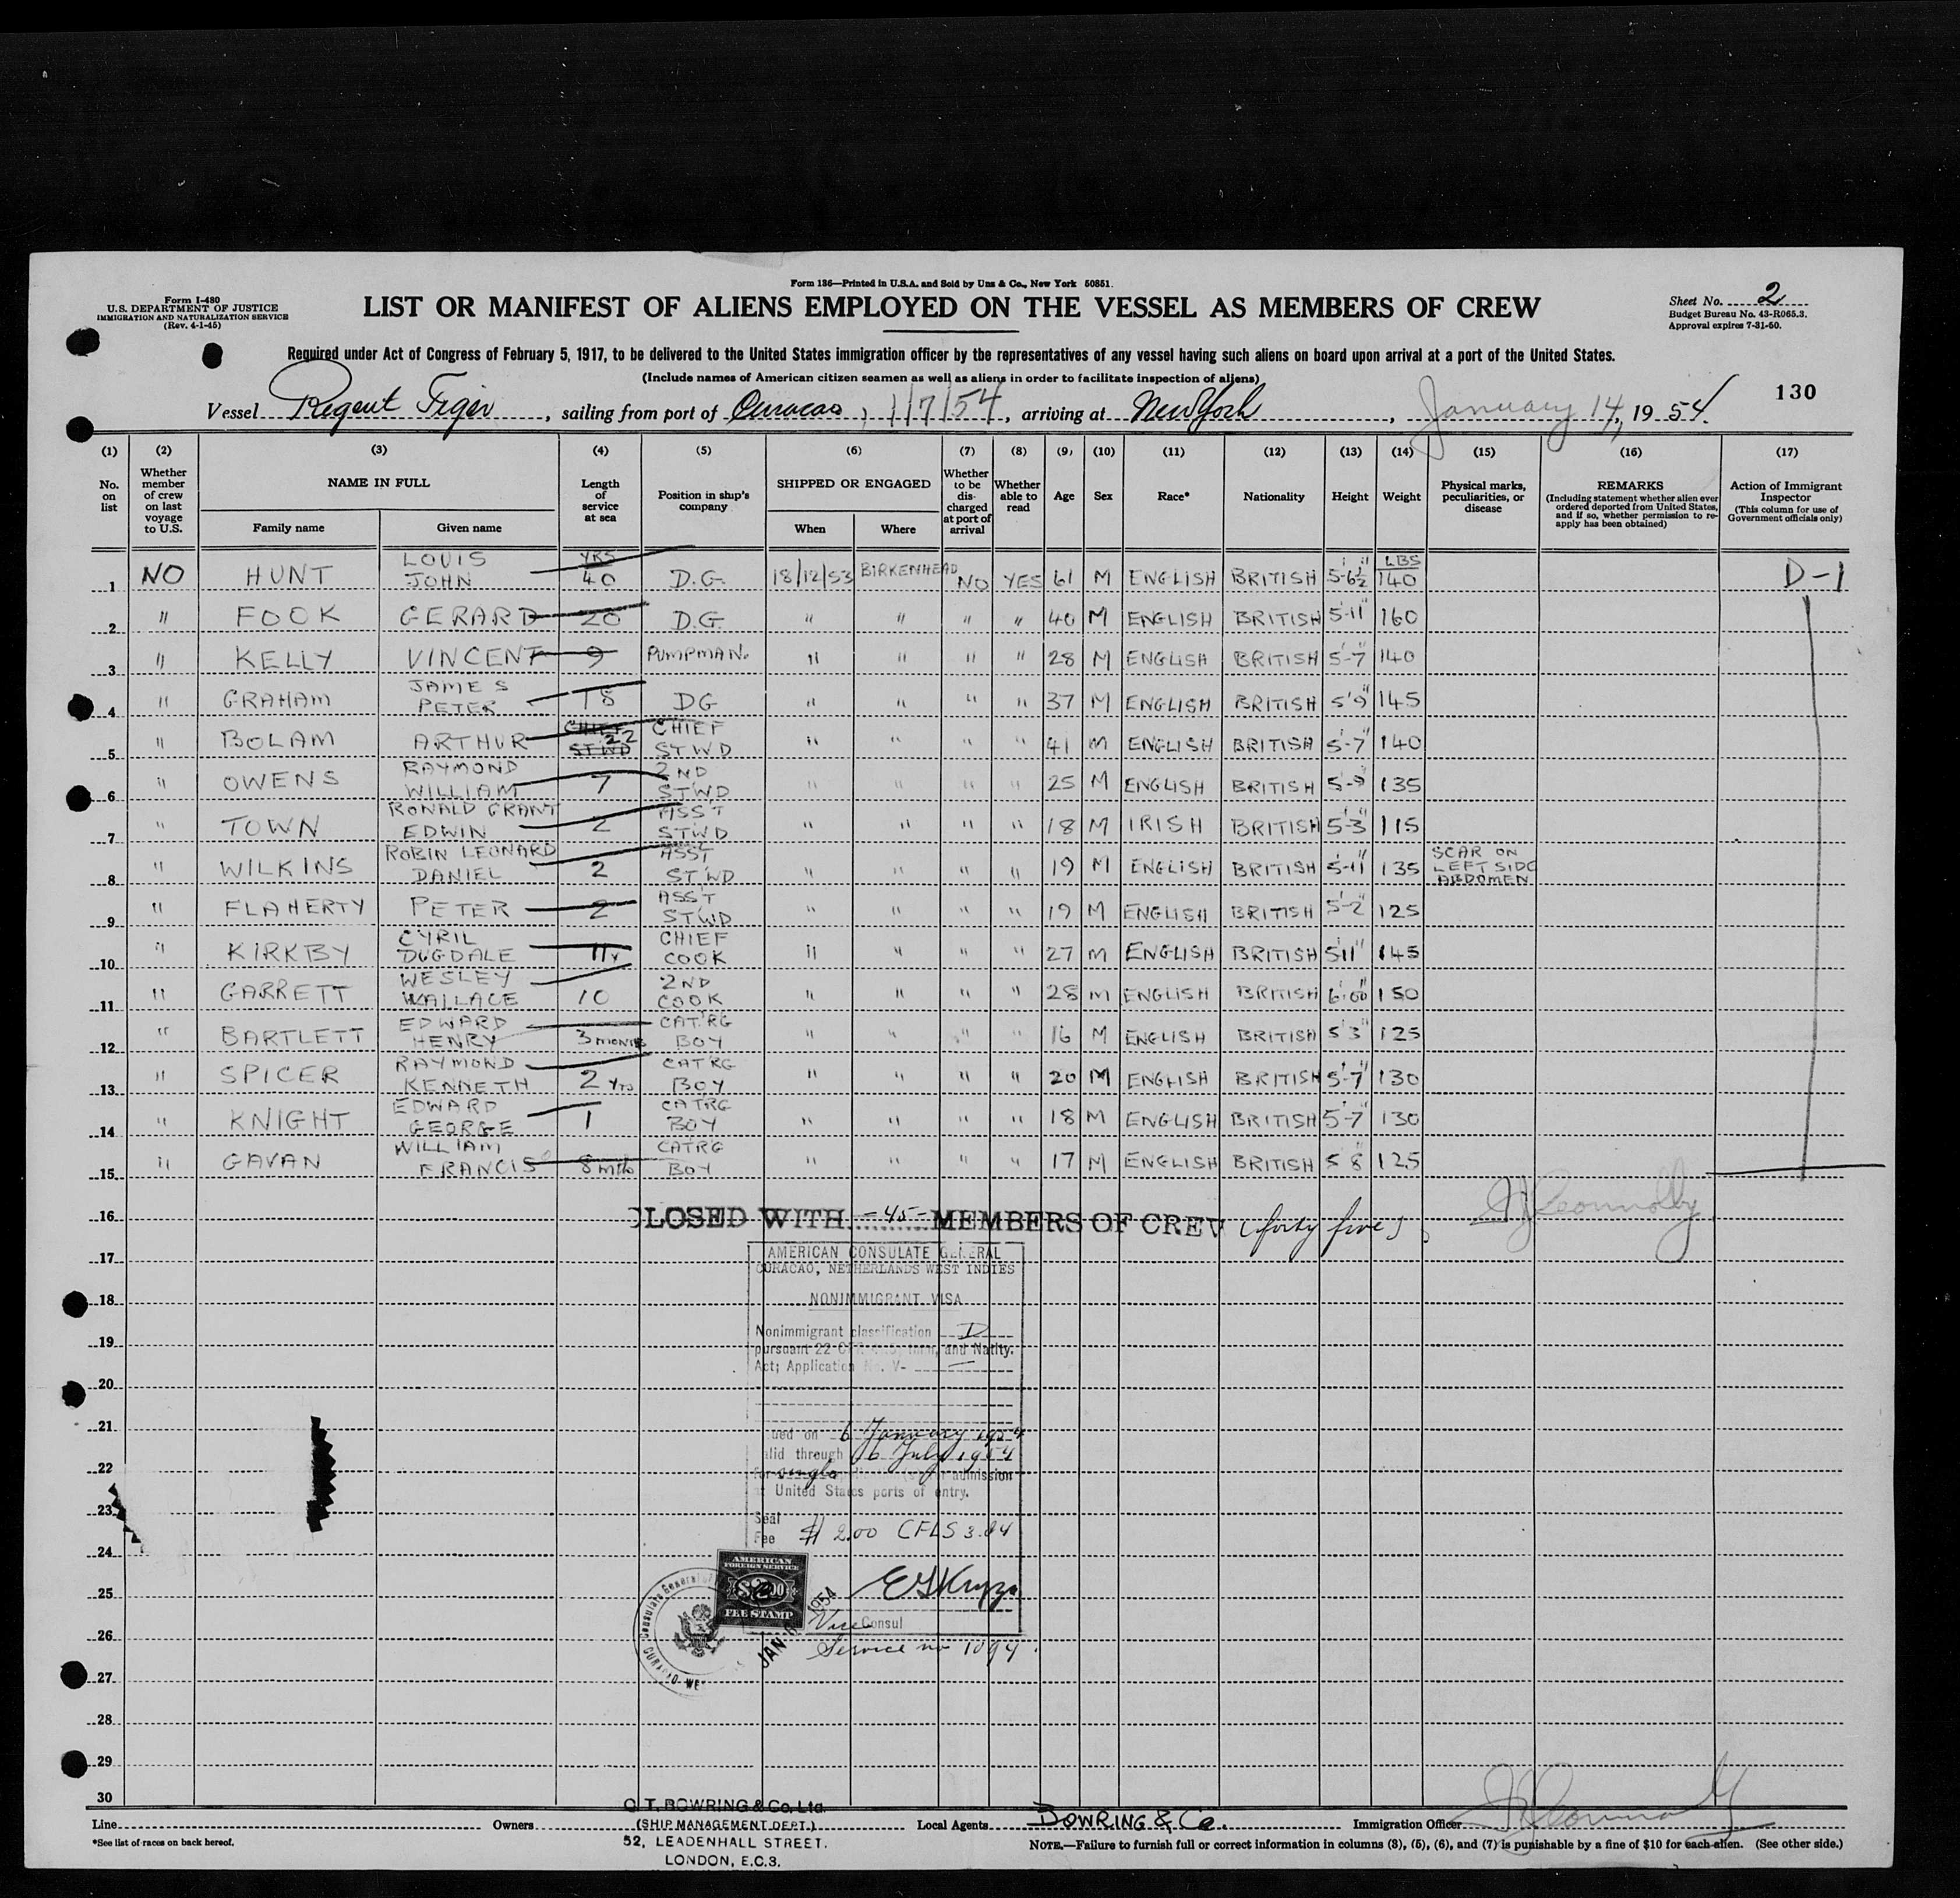 Form 136—Printed in U.S.A. and Sold by Unz & Co., New York 50851.
Form I-480
U.S. DEPARTMENT OF JUSTICE
IMMIGRATION AND NATURALIZATION SERVICE
(Rev. 4-1-45)
LIST OR MANIFEST OF ALIENS EMPLOYED ON THE VESSEL AS MEMBERS OF CREW
Sheet No. 2
Budget Bureau No. 43-R065.3.
Approval expires 7-31-50.
Required under Act of Congress of February 5, 1917, to be delivered to the United States immigration officer by the representatives of any vessel having such aliens on board upon arrival at a port of the United States.
(Include names of American citizen seamen as well as aliens in order to facilitate inspection of aliens)
130
Vessel Regent Tiger, sailing from port of Curacao, 1/7/54, arriving at New York, January 14, 1954.
(1) (2) (3) (4) (5) (6) (7) (8) (9) (10) (11) (12) (13) (14) (15) (16) (17)
No. on list
Whether member of crew on last voyage to U.S.
NAME IN FULL
Family name Given name
Length of service at sea
Position in ship's company
SHIPPED OR ENGAGED
When Where
Whether to be discharged at port of arrival
Whether able to read
Age Sex Race* Nationality Height Weight
Physical marks, peculiarities, or disease
REMARKS
(Including statement whether alien ever ordered deported from United States, and if so, whether permission to reapply has been obtained)
Action of Immigrant Inspector
(This column for use of Government officials only)
1 NO HUNT LOUIS JOHN YRS 40 D.G. 18/12/53 BIRKENHEAD NO YES 61 M ENGLISH BRITISH 5'-6½" LBS 140 D-1
2 " FOOK GERARD 20 D.G. " " " " 40 M ENGLISH BRITISH 5'-11" 160
3 " KELLY VINCENT 9 PUMPMAN. " " " " 28 M ENGLISH BRITISH 5'-7" 140
4 " GRAHAM JAMES PETER 18 DG " " " " 37 M ENGLISH BRITISH 5'9" 145
5 " BOLAM ARTHUR CHIEF STWD 22 CHIEF STWD " " " " 41 M ENGLISH BRITISH 5'-7" 140
6 " OWENS RAYMOND WILLIAM 7 2ND STWD " " " " 25 M ENGLISH BRITISH 5-9" 135
7 " TOWN RONALD GRANT EDWIN 2 ASS'T STWD " " " " 18 M IRISH BRITISH 5'-3" 115
8 " WILKINS ROBIN LEONARD DANIEL 2 ASST STWD " " " " 19 M ENGLISH BRITISH 5'-11" 135 SCAR ON LEFT SIDE ABDOMEN
9 " FLAHERTY PETER 2 ASS'T STWD " " " " 19 M ENGLISH BRITISH 5'-2" 125
10 " KIRKBY CYRIL DUGDALE 11 CHIEF COOK " " " " 27 M ENGLISH BRITISH 5'11" 145
11 " GARRETT WESLEY WALLACE 10 2ND COOK " " " " 28 M ENGLISH BRITISH 6'00" 150
12 " BARTLETT EDWARD HENRY 3 CAT'RG BOY " " " " 16 M ENGLISH BRITISH 5'3" 125
13 " SPICER RAYMOND KENNETH 2 yrs CAT'RG BOY " " " " 20 M ENGLISH BRITISH 5'-7" 130
14 " KNIGHT EDWARD GEORGE 1 CATRG BOY " " " " 18 M ENGLISH BRITISH 5'-7" 130
15 " GAVAN WILLIAM FRANCIS 8 mths CATRG BOY " " " " 17 M ENGLISH BRITISH 5 8" 125
16 CLOSED WITH -45- MEMBERS OF CREW (forty five)
17
AMERICAN CONSULATE GENERAL
CURACAO, NETHERLANDS WEST INDIES
18
NONIMMIGRANT VISA
19
Nonimmigrant classification D
pursuant 22 and Natlty.
Act; Application No. V-
20
21
ued on 6 January 1954
alid through 6 July 1954
22
for single admission
at United States ports of entry.
23
Seal
Fee $ 2.00 CFLS 3.84
24
AMERICAN
FOREIGN SERVICE
FEE STAMP
25
26
Vice Consul
Service no 1094
JAN 1954
Consulate General
27
28
29
30
Line
Owners
C. T. BOWRING & Co. Ltd.
(SHIP MANAGEMENT DEPT.)
52, LEADENHALL STREET.
LONDON, E.C.3.
Local Agents BOWRING & Co.
Immigration Officer
*See list of races on back hereof.
NOTE.—Failure to furnish full or correct information in columns (3), (5), (6), and (7) is punishable by a fine of $10 for each alien. (See other side.)